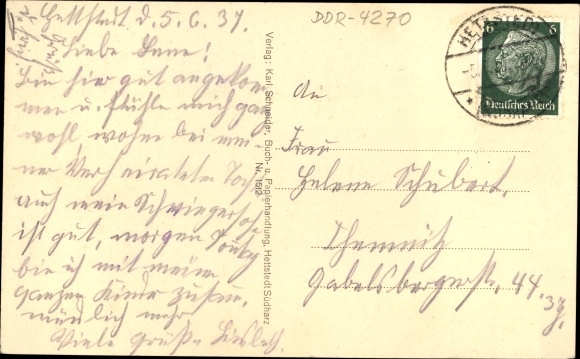 Hettstedt d. 5.6.37.
Liebe Lene!
Bin hier gut angekom-
men u. fühle mich ganz
wohl, wohne bei mei-
ner Verheirateten Toch.
auch mein Schwiegersohn
ist gut, morgen Sontag
bin ich mit meinen
ganzen Kinder zusam.
mündlich mehr
Viele Grüße Lisbeth.
Verlag: Karl Schneider, Buch- u. Papierhandlung, Hettstedt Südharz
Nr. 1512
DDR-4270
HETTSTEDT
6 6
Deutsches Reich
An
Frau
Helene Schubert.
Chemnitz
Gabelsbergerstr. 44.